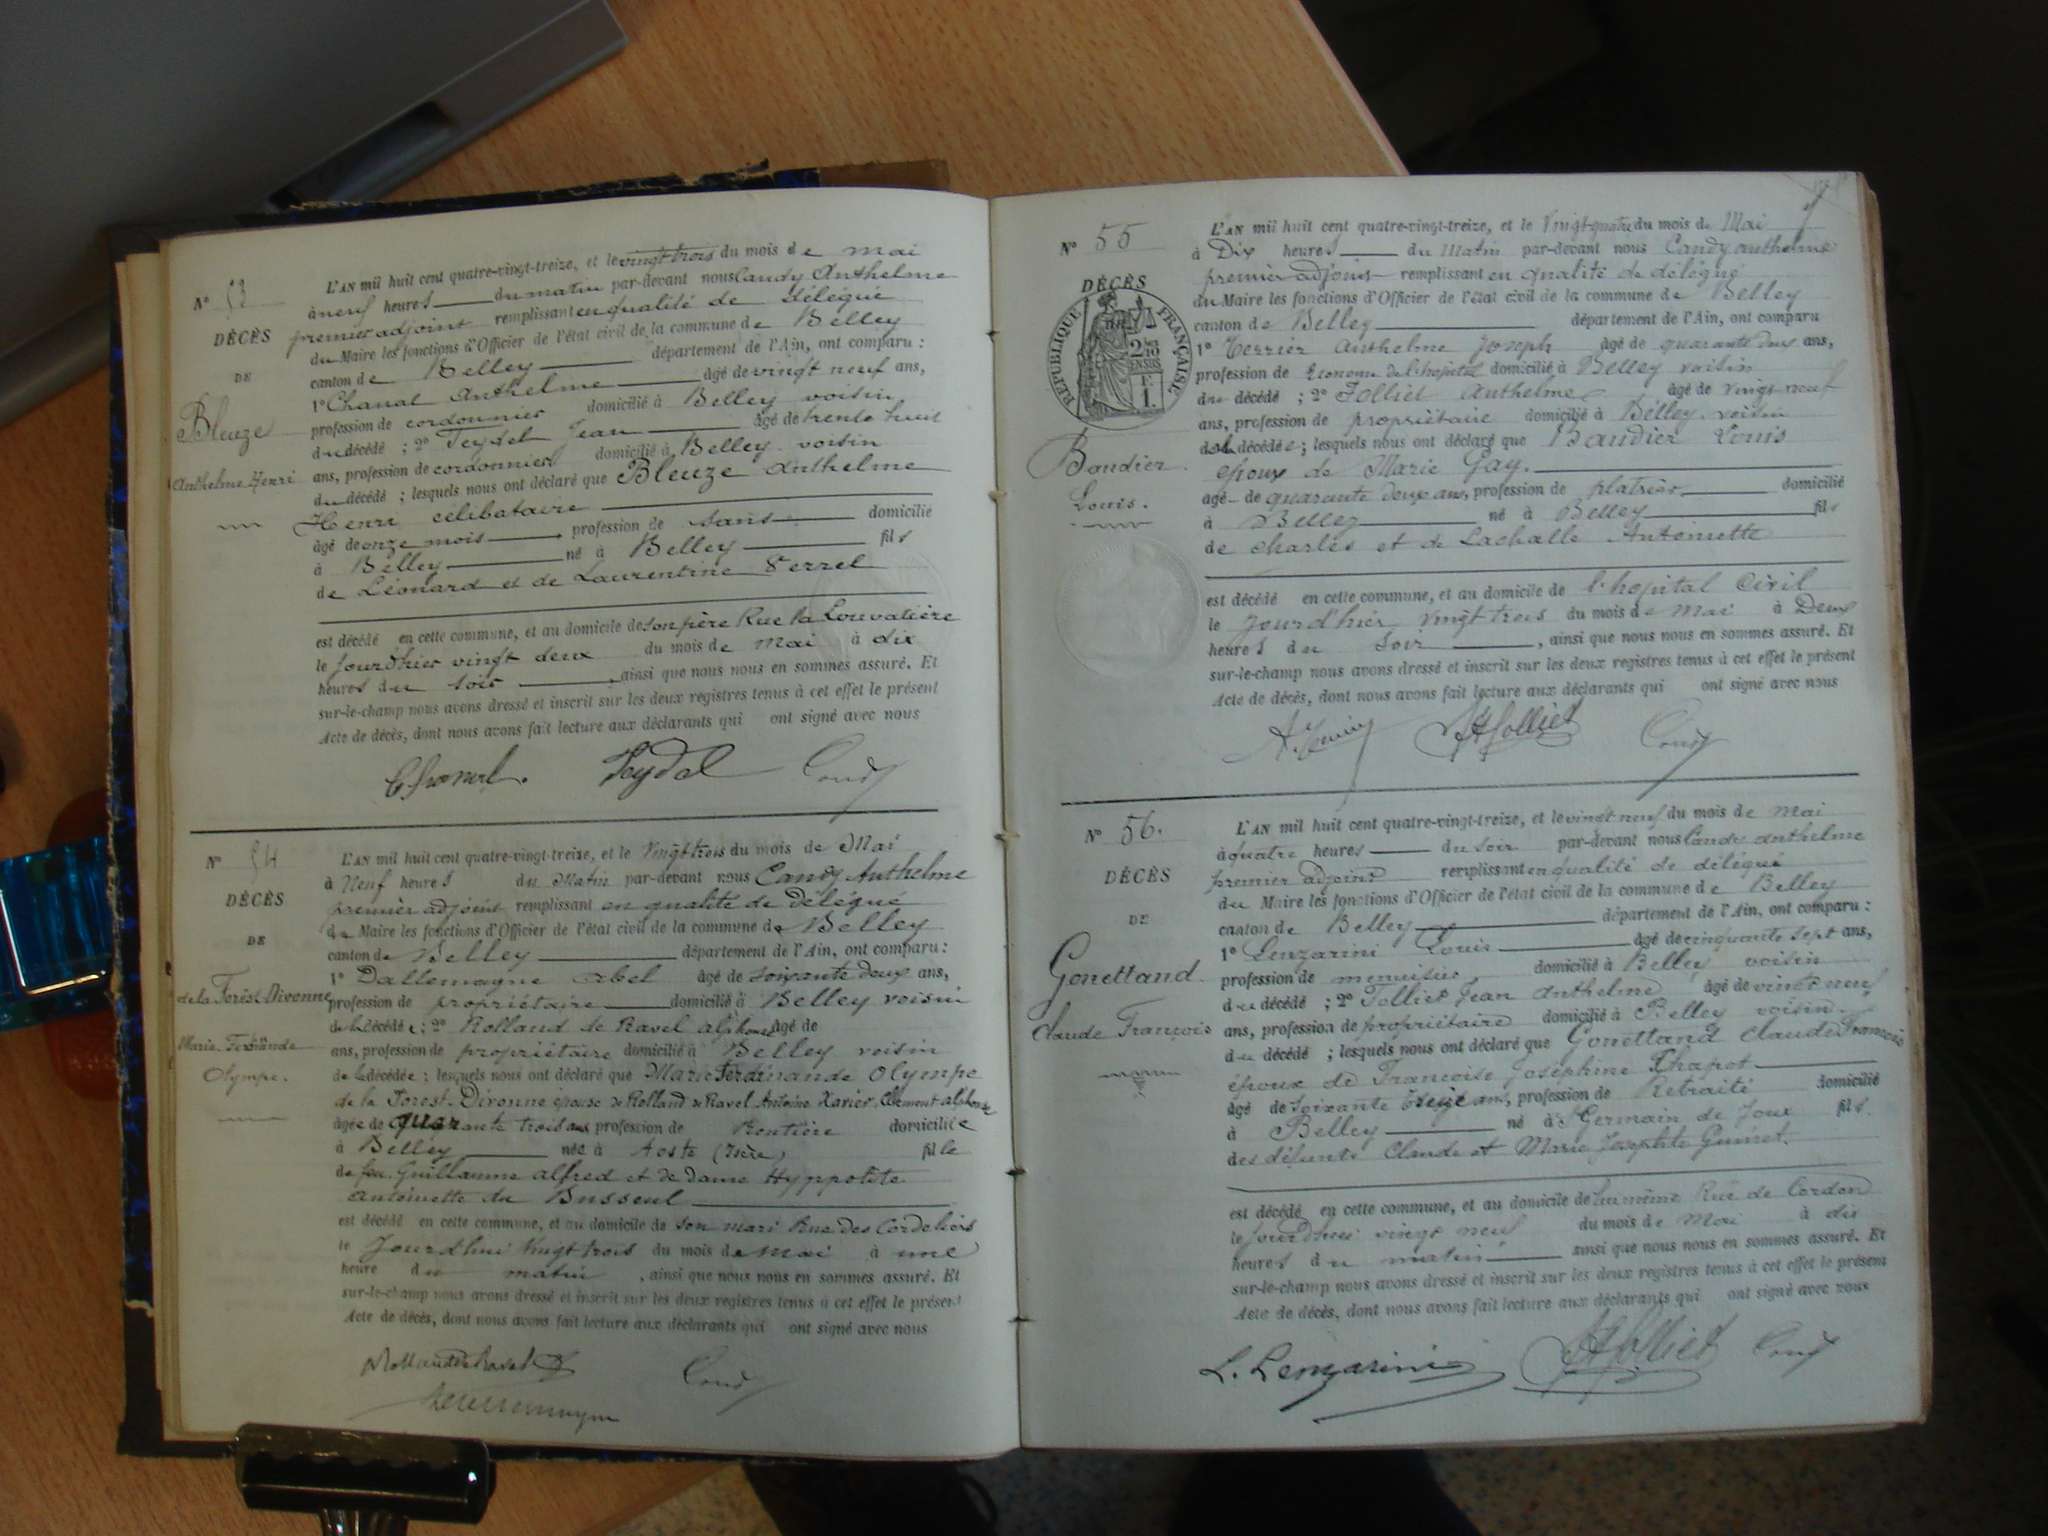 N° 53
DÉCÈS
DE
Bleuze
Anthelme Henri
L'AN mil huit cent quatre-vingt-treize, et le vingt trois du mois de mai
à neuf heures du matin par-devant nous Candy Anthelme
premier adjoint remplissant en qualité de délégué
du Maire les fonctions d'Officier de l'état civil de la commune de Belley
canton de Belley département de l'Ain, ont comparu :
1° Chanal Anthelme âgé de vingt neuf ans,
profession de cordonnier domicilié à Belley voisin
du décédé ; 2° Feydel Jean âgé de trente huit
ans, profession de cordonnier domicilié à Belley voisin
du décédé ; lesquels nous ont déclaré que Bleuze Anthelme
Henri célibataire
âgé de onze mois profession de sans domicilié
à Belley né à Belley fils
de Léonard et de Laurentine Ferrel
est décédé en cette commune, et au domicile de son père Rue la Louvatière
le jourd'hier vingt deux du mois de mai à dix
heures du soir, ainsi que nous nous en sommes assuré. Et
sur-le-champ nous avons dressé et inscrit sur les deux registres tenus à cet effet le présent
Acte de décès, dont nous avons fait lecture aux déclarants qui ont signé avec nous
Chanal. Feydel Candy
N° 54
DÉCÈS
DE
de la Forest Divonne
Marie Ferdinande
Olympe.
L'AN mil huit cent quatre-vingt-treize, et le vingt trois du mois de Mai
à Neuf heures du Matin par-devant nous Candy Anthelme
premier adjoint remplissant en qualité de délégué
du Maire les fonctions d'Officier de l'état civil de la commune de Belley
canton de Belley département de l'Ain, ont comparu :
1° Dallemagne Abel âgé de soixante deux ans,
profession de propriétaire domicilié à Belley voisin
de la décédée ; 2° Rolland de Ravel alphonse âgé de
ans, profession de propriétaire domicilié à Belley voisin
de la décédée ; lesquels nous ont déclaré que Marie Ferdinande Olympe
de la Forest-Divonne épouse de Rolland de Ravel Antoine Xavier Clément alphonse
âgée de quarante trois ans profession de Rentière domiciliée
à Belley née à Aoste (Isère) fille
de feu Guillaume alfred et de dame Hyppolite
Antoinette du Busseul
est décédé en cette commune, et au domicile de son mari Rue des Cordeliers
le jourdhui vingt trois du mois de mai à une
heure du matin, ainsi que nous nous en sommes assuré. Et
sur-le-champ nous avons dressé et inscrit sur les deux registres tenus à cet effet le présent
Acte de décès, dont nous avons fait lecture aux déclarants qui ont signé avec nous
Rolland de Ravel Candy
N° 55
DÉCÈS
RÉPUBLIQUE FRANÇAISE
Baudier
Louis.
L'AN mil huit cent quatre-vingt-treize, et le vingt quatre du mois de Mai
à Dix heures du Matin par-devant nous Candy anthelme
premier adjoint remplissant en qualité de délégué
du Maire les fonctions d'Officier de l'état civil de la commune de Belley
canton de Belley département de l'Ain, ont comparu
1° Terrier Anthelme Joseph âgé de quarante deux ans,
profession de Econome de l'hopital domicilié à Belley voisin
du décédé ; 2° Jolliet Anthelme âgé de vingt neuf
ans, profession de propriétaire domicilié à Belley voisin
du décédé ; lesquels nous ont déclaré que Baudier Louis
époux de Marie Gay.
âgé de quarante deux ans, profession de platrier domicilié
à Belley né à Belley fils
de Charles et de Lachalle Antoinette
est décédé en cette commune, et au domicile de l'hopital Civil
le jourd'hier vingt trois du mois de mai à Deux
heures du soir, ainsi que nous nous en sommes assuré. Et
sur-le-champ nous avons dressé et inscrit sur les deux registres tenus à cet effet le présent
Acte de décès, dont nous avons fait lecture aux déclarants qui ont signé avec nous
A. Terrier JA Jolliet Candy
N° 56.
DÉCÈS
DE
Gonettand
Claude François
L'AN mil huit cent quatre-vingt-treize, et le vingt neuf du mois de mai
à quatre heures du soir par-devant nous Candy Anthelme
premier adjoint remplissant en qualité de délégué
du Maire les fonctions d'Officier de l'état civil de la commune de Belley
canton de Belley département de l'Ain, ont comparu :
1° Lenzarini Louis âgé de cinquante sept ans,
profession de menuisier domicilié à Belley voisin
du décédé ; 2° Jolliet Jean Anthelme âgé de vingt neuf
ans, profession de propriétaire domicilié à Belley voisin
du décédé ; lesquels nous ont déclaré que Gonettand Claude François
époux de Françoise Joséphine Chapot
âgé de soixante treize ans, profession de Retraité domicilié
à Belley né à St Germain de Joux fils
des défunts Claude et Marie Josephte Guinet.
est décédé en cette commune, et au domicile de lui même Rue de Cordon
le jourdhui vingt neuf du mois de Mai à dix
heures du matin ainsi que nous nous en sommes assuré. Et
sur-le-champ nous avons dressé et inscrit sur les deux registres tenus à cet effet le présent
Acte de décès, dont nous avons fait lecture aux déclarants qui ont signé avec nous
L. Lenzarini JA Jolliet Candy